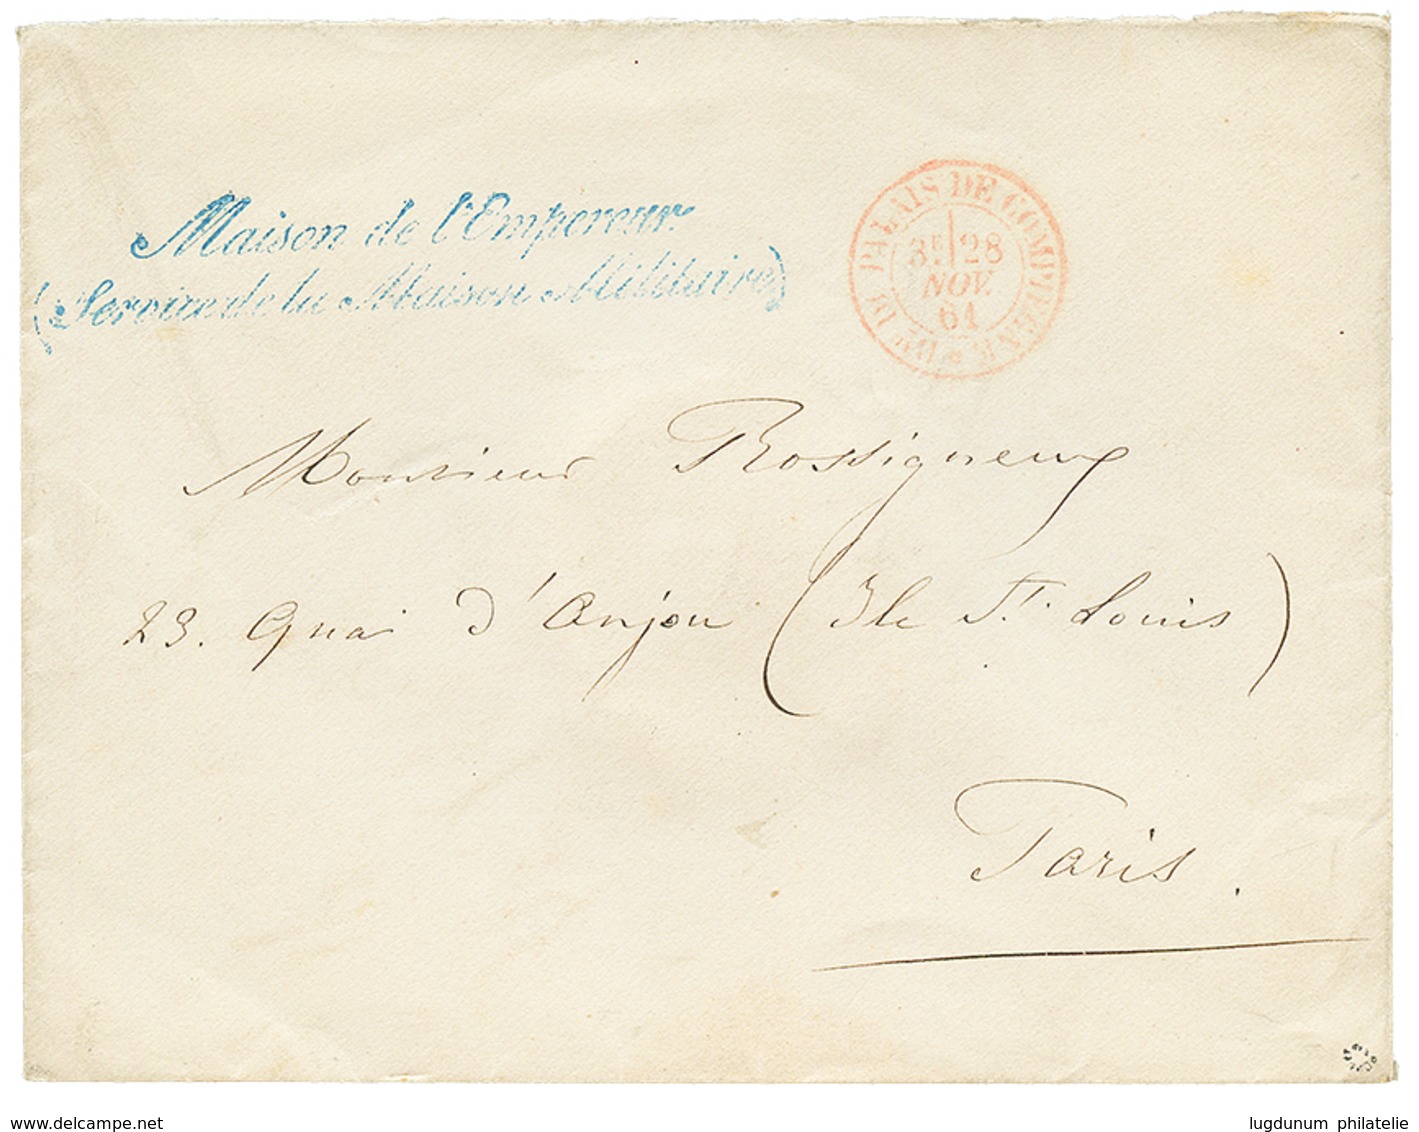 Maison de l'Empereur
(Service de la Maison Militaire)
Bau DU PALAIS DE COMPIEGNE
3E 28
NOV.
61
Monsieur Rossigneux
23. Quai d'Anjou (Ile St. Louis)
Paris.
www.delcampe.net
lugdunum philatelie